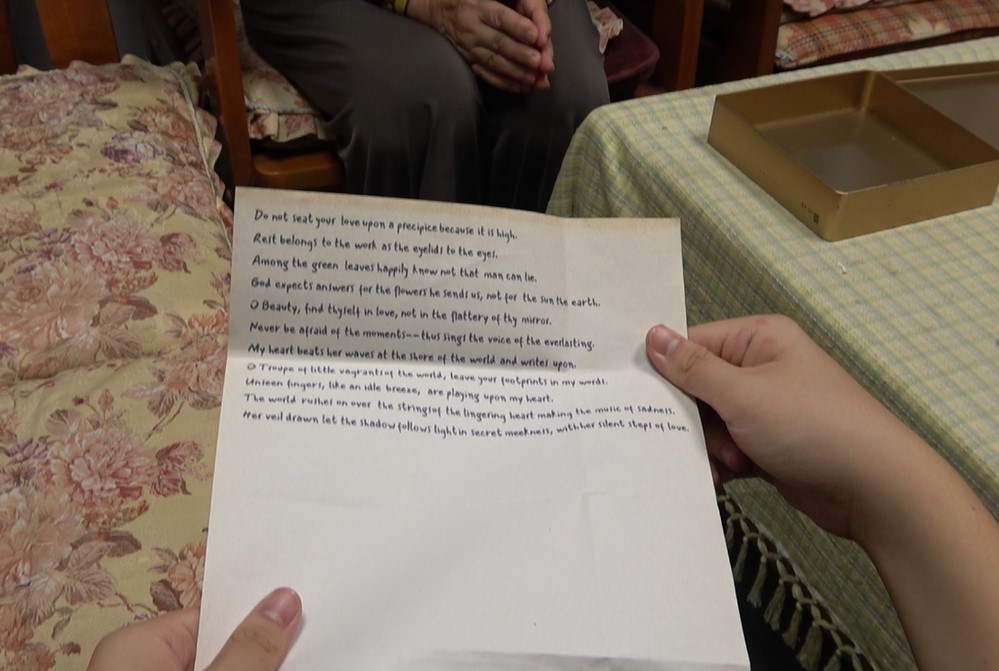 Do not seat your love upon a precipice because it is high.
Rest belongs to the work as the eyelids to the eyes.
Among the green leaves happily know not that man can lie.
God expects answers for the flowers he sends us, not for the sun the earth.
O Beauty, find thyself in love, not in the flattery of thy mirror.
Never be afraid of the moments--thus sings the voice of the everlasting.
My heart beats her waves at the shore of the world and writes upon.
O Troupe of little vagrants of the world, leave your footprints in my words.
Unseen fingers, like an idle breeze, are playing upon my heart.
The world rushes on over the strings of the lingering heart making the music of sadness.
Her veil drawn let the shadow follows light in secret meekness, with her silent steps of love.